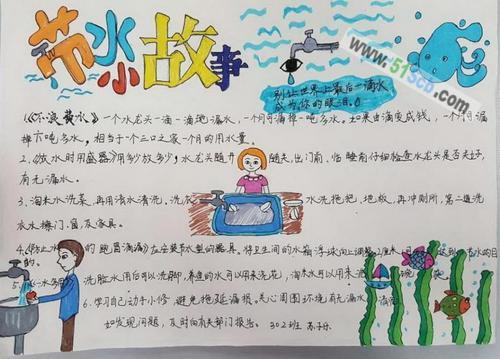 节水小故事
www.51Scb.com
别让世界上最后一滴水
成为你的眼泪。
1《不浪费水》一个水龙头一滴一滴地漏水,一个月可漏掉一吨多水。如果由滴变成线,一个月漏
掉六吨多水,相当于一个三口之家一个月的用水量。
2.《放水时用盛器》用多少放多少;水龙头随开随关,出门前、临睡前仔细检查水龙头是否关好,
有无漏水。
3、淘米水洗菜,再用清水清洗。洗衣水洗拖把、地板、再冲厕所,第二道洗
衣水擦门、窗及家具。
4.《防止水的跑冒滴漏》在安装节水型的器具。将卫生间的水箱浮球向下调整2厘米
目的。
5.《一水多用》洗脸水用后可以洗脚,养鱼的水可以用来浇花,淘米水可以用来
6.学习自己动手小修,避免拖延漏损。关心周围环境有无漏水
如发现问题,及时向有关部门报告。 302班